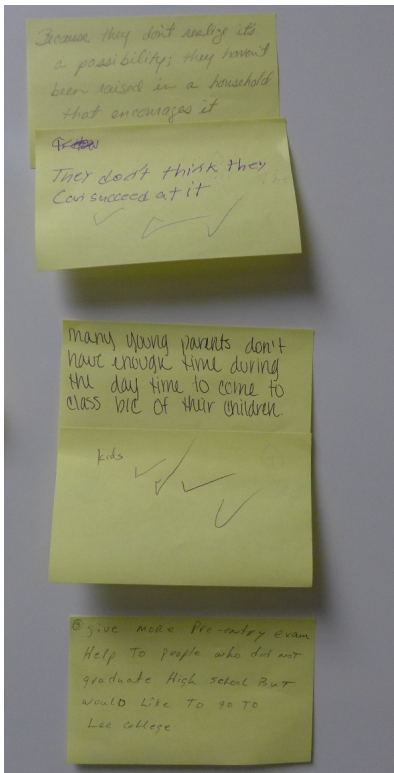 Because they don't realize it's
a possibility; they haven't
been raised in a household
that encourages it
They don't think they
Can succeed at it
many young parents don't
have enough time during
the day time to come to
class b/c of their children.
kids
give more Pre-entry Exam
Help To people who did not
graduate High school But
would Like To go To
Lee college